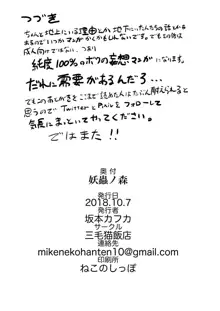 つづき
ちゃんと地上にいる理由とか、地下にいた人たちの話とかは
あるのでいつかマンガかくかもしんないです。でもその後は
成人向けではない、つまり
純度100%のボクの妄想マンガになります。
だれに需要があるんだろ…
てんこのあとがきをここまで読めた人はたぶん耐えられると
思うので TwitterとPixivをフォローして
気長にまっといてやってください。
ではまた!!
奥付
妖蟲ノ森
発行日
2018.10.7
発行者
坂本カフカ
サークル
三毛猫飯店
連絡先
mikenekohanten10@gmail.com
印刷所
ねこのしっぽ